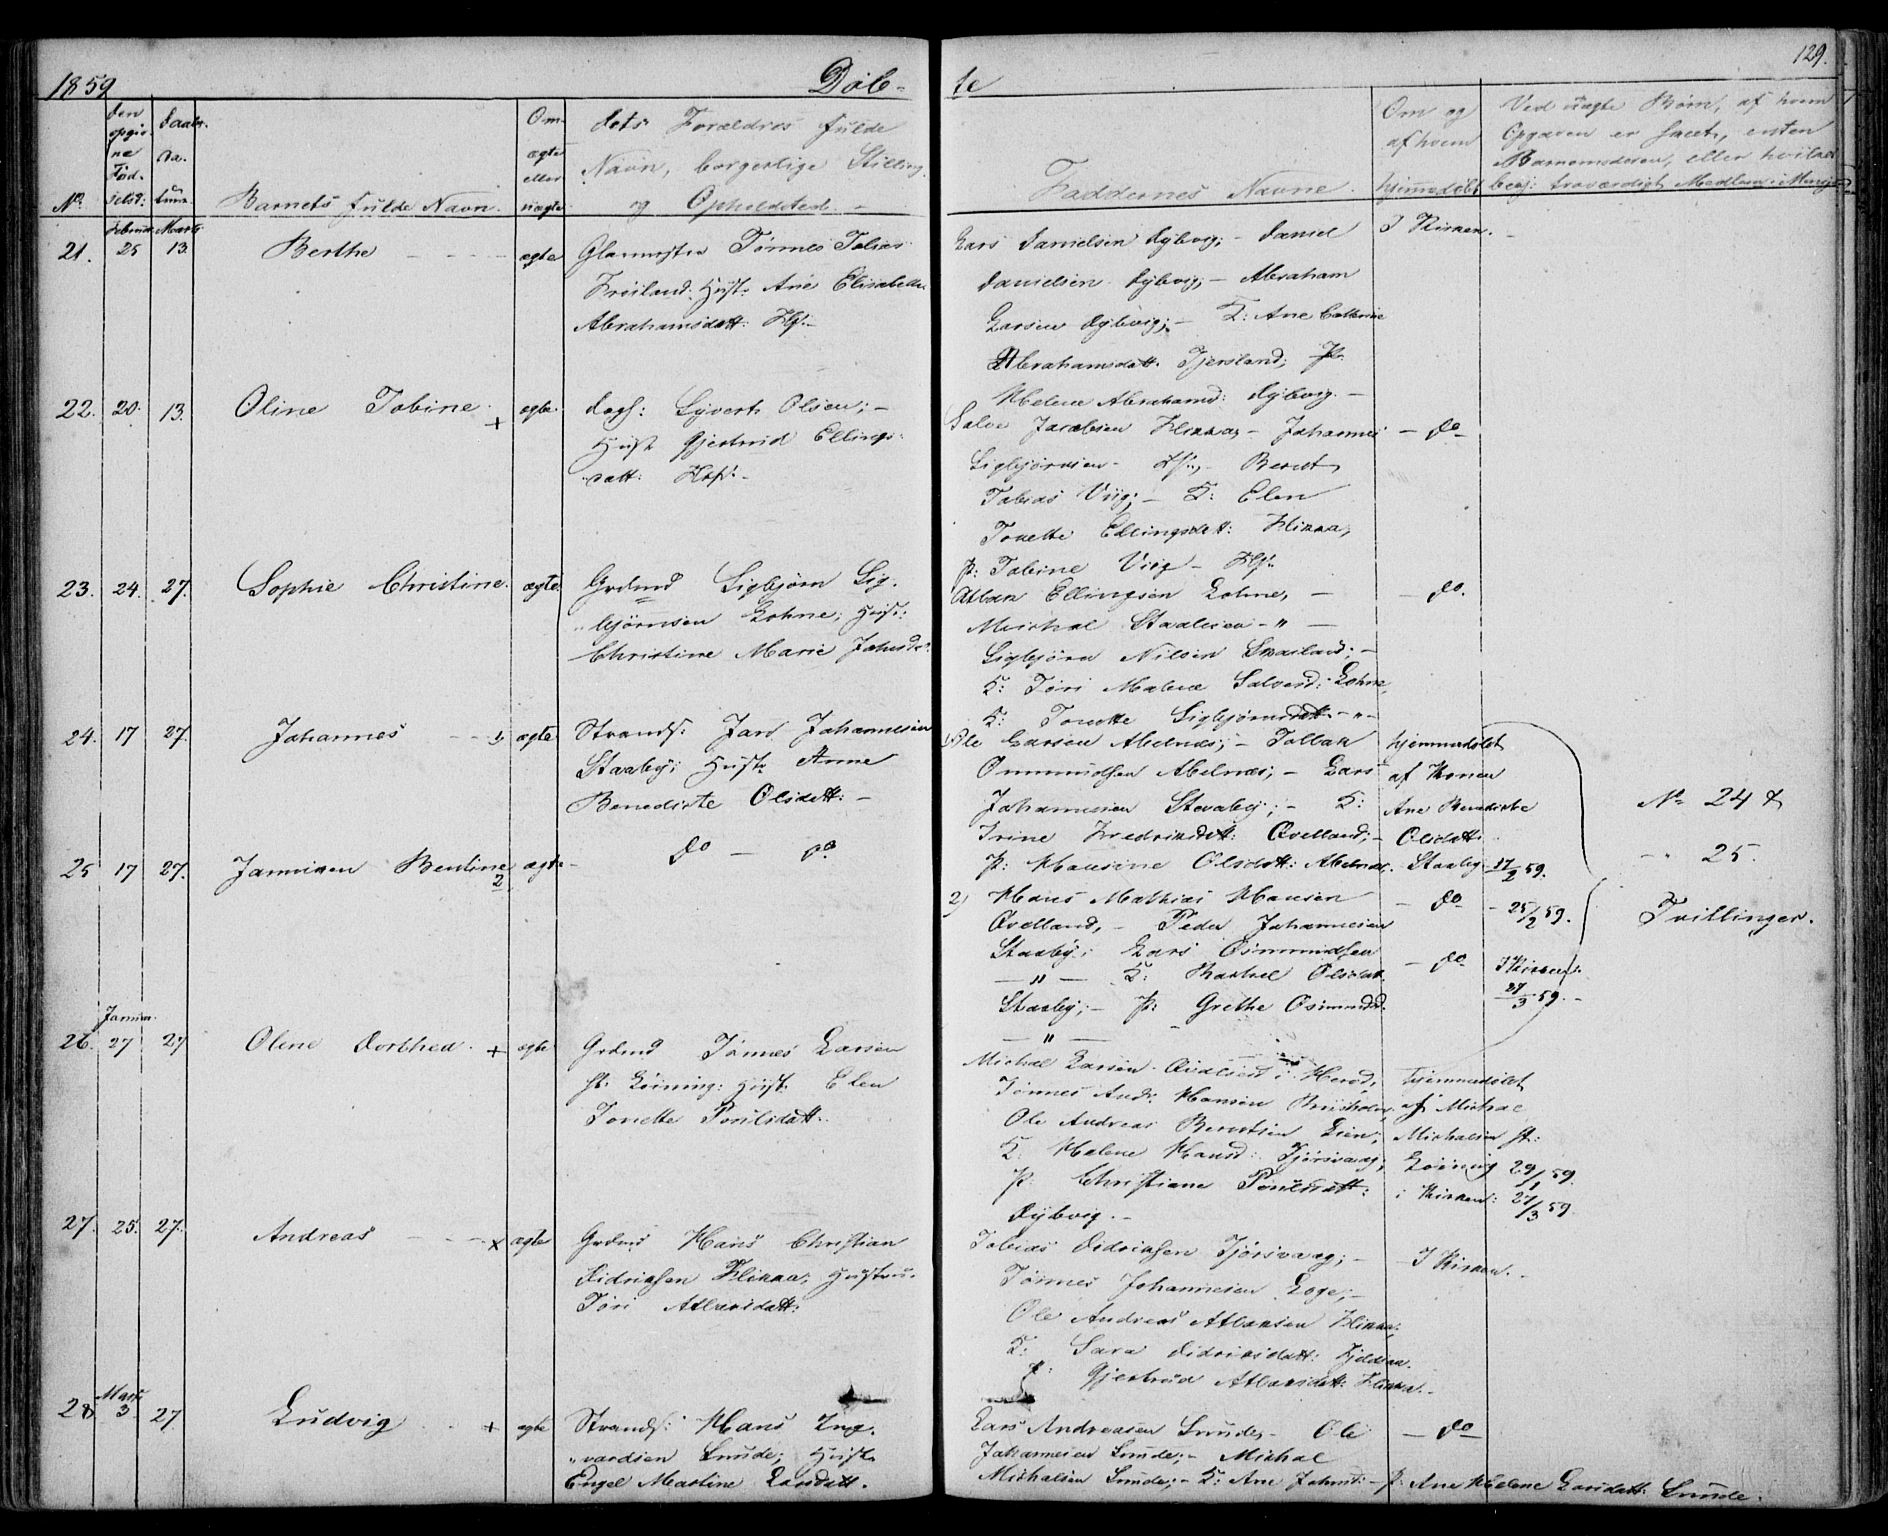 1859
Døb-
te
129.
No
den opgiv-
ne Fød-
Daabs-
Barnets fulde Navn.
Om
ægte
eller
uægte
dets Forældres fulde
Navn, borgerlige Stilling
og Opholdsted. -
Faddernes Navne.
Om og
af hvem
hjemmedøbt
Ved uægte Børn, af hvem
Opgaven er skeet, enten
Barnemoderen, eller hvilket
troværdigt Medlem i Menigh
21. Februar 25 Marts 13 Berthe - - - - ægte
Tønnes Tobias
Hust: Ane Elisabeth
Abrahamsdatt:
Lars Danielsen Dybvig; - Daniel
Danielsen Dybvig; - Abraham
Larsen Dybvig; - K: Ane Cathrine
Abrahamsdatt: Tjersland; P:
Helene Abrahamsd: Dybvig. -
I Kirken. -
22. 20. 13. Oline Tobine. + ægte.
Dags: Syvert Olsen; -
Hust Gjertrud Ellings-
datt:
Salve Jacobsen - Johannes
Sigbjørnsen - Berent
Tobias Viig; - K: Elen
Tonette Ellingsdatt:
P: Tobine Viig -
- do -
23. 24. 27. Sophie Christine. ægte.
Grdmd Sigbjørn Sig-
bjørnsen Lohne; Hust:
Christine Marie Johnsd:
Atlak Ellingsen Lohne, -
Michal Staalesen - " -
Sigbjørn Nilsen
K: Tøri Malene Salvesd: Lohne,
K: Tonette Sigbjørnsdatt - " -
- do.
24. 17 27. Johannes - - 1) ægte.
Strands: Jacob Johannesen
Staaby; Hust: Anne
Benedicte Olsdatt: -
1) Ole Larsen Abelnæs; - Tollak
Ommundsen Abelnæs; - Lars
Johannesen Staaby; - K:
Trine Fredriksdatt: Qvelland; -
P: Hansine Olsdatt: Abelnæs.
hjemmedøbt
af Konen
Ane Benedicte
Olsdatt:
Staaby 17/2 59.
No 24 &
- " 25.
Tvillinger.
25 17 27. Bentine 2 ægte -
do - do
2) Hans Mathias Hansen
Qvelland, - Peder Johannesen
Staaby; Lars Osmundsen
- " - K: Rachel Olsdatt
Staaby; - P: Grethe Osmundsd.
- " -
- do - 25/2 59.
- do I Kirken:
27/3 59. -
26. Januar 27 27 Oline Dorthea. + ægte
Grdmd Tønnes Larsen
st: Løining: Hust: Elen
Tonette Poulsdatt:
Michal Larsen i Herad,
Tønnes Andr: Hansen
Ole Andreas Berentsen Lien;
K: Helene Hansd: Tjørsvaag;
P: Christiane Poulsdatt:
Dybvig. -
hjemmedøbt
af Michal
Michalsen st:
Løining 29/1 59.
i Kirken: 27/3 59.
27. 25. 27. Andreas - - - x ægte
Grdmd Hans Christian
Didriksen Hust
Tøri Atlaksdatt:
Tobias Didriksen Tjørsvaag; -
Tønnes Johannesen Loge; -
Ole Andreas Atlaksen
K: Sara Didriksdatt:
P: Gjertrud Atlaksdatt:
- I Kirken. -
28 Marts 3 27 Ludvig + ægte
Strands: Hans Ing-
"vardsen Sunde; Hust:
Engel Martine Larsdatt.
Lars Andreasen Sunde, - Ole
Johannesen Sunde; - Michal
Michalsen Sunde; - K: Ane Johnsd: - P: Ane Helene Larsdatt: Sunde.
- do -